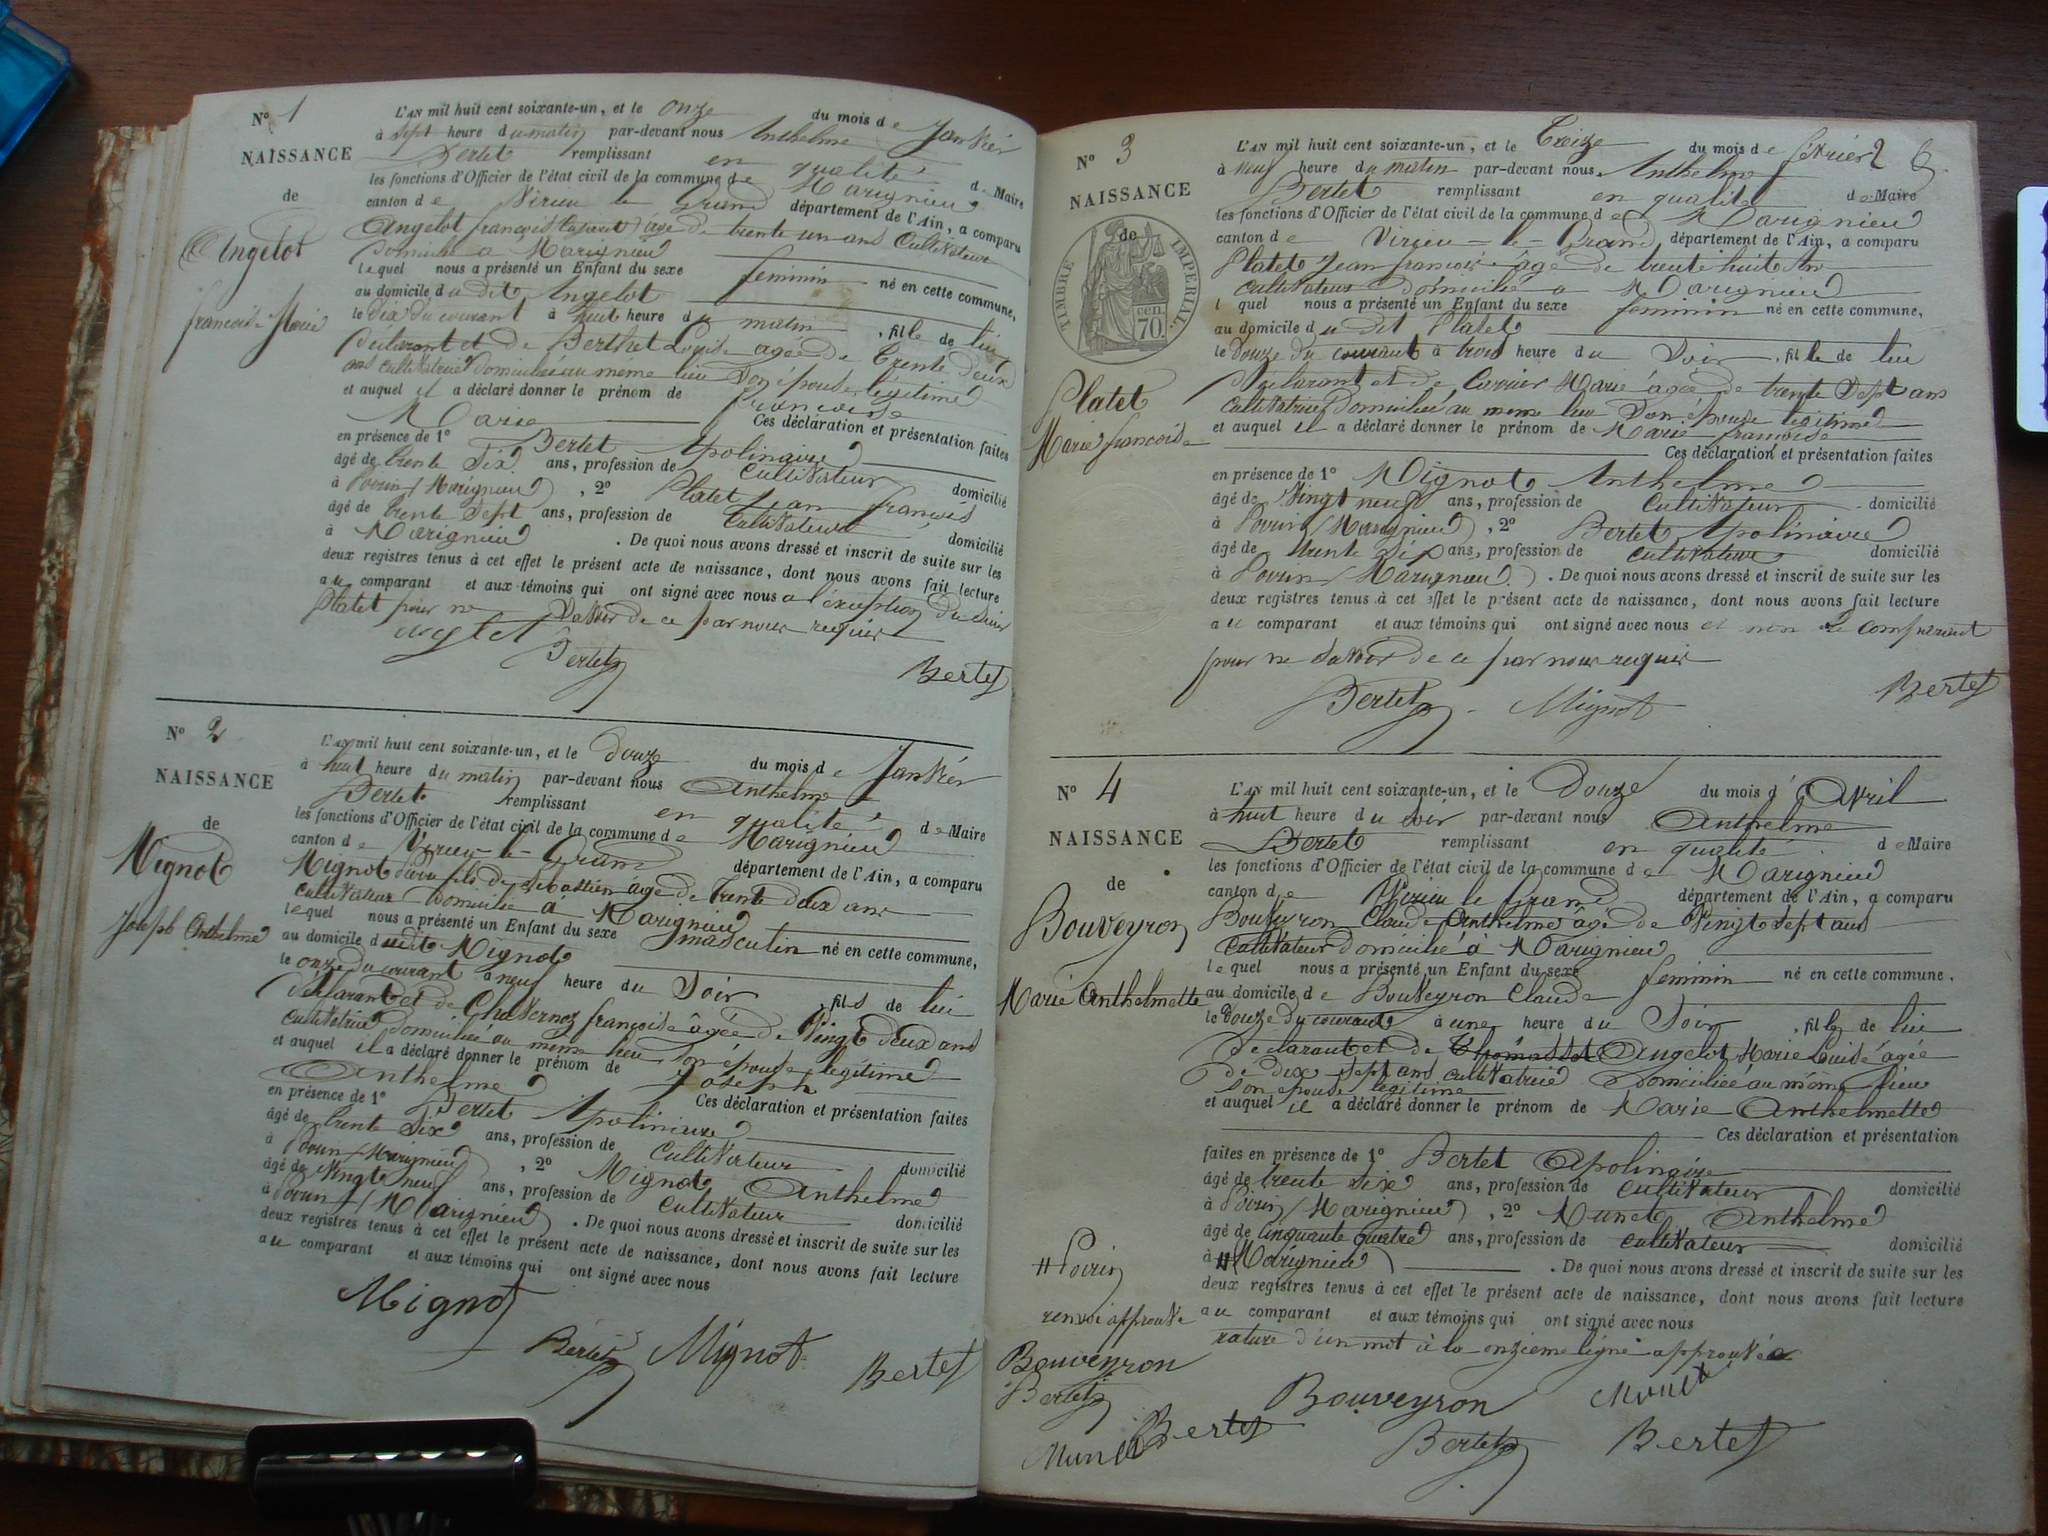 N° 1
NAISSANCE
de
Angelot
francoise Marie
L'AN mil huit cent soixante-un, et le onze du mois de Janvier
à sept heure du matin par-devant nous Anthelme
Bertet remplissant en qualité de Maire
les fonctions d'Officier de l'état civil de la commune de Marignieu
canton de Virieu le Grand département de l'Ain, a comparu
Angelot françois âgé de trente un ans Cultivateur
domicilié à Marignieu
lequel nous a présenté un Enfant du sexe feminin né en cette commune,
au domicile du dit Angelot
le dix du courant à huit heure du matin, fille de lui
déclarant et de Berthet Louise agée de trente deux
ans cultivatrice domiciliée au meme lieu son épouse légitime
et auquel il a déclaré donner le prénom de francoise
Marie Ces déclaration et présentation faites
en présence de 1° Bertet Apolinaire
âgé de trente six ans, profession de Cultivateur domicilié
à Poirin (Marignieu), 2° Platet Jean françois
âgé de trente sept ans, profession de Cultivateur domicilié
à Marignieu. De quoi nous avons dressé et inscrit de suite sur les
deux registres tenus à cet effet le présent acte de naissance, dont nous avons fait lecture
au comparant et aux témoins qui ont signé avec nous a l'exception du Sieur
Platet pour ne savoir de ce par nous requis
Bertet
Bertet
N° 2
NAISSANCE
de
Mignot
Joseph Anthelme
L'AN mil huit cent soixante-un, et le douze du mois de Janvier
à huit heure du matin par-devant nous Anthelme
Bertet remplissant en qualité de Maire
les fonctions d'Officier de l'état civil de la commune de Marignieu
canton de Virieu-le-Grand département de l'Ain, a comparu
Mignot fils de Sebastien agé de trente deux ans
cultivateur domicilié à Marignieu
lequel nous a présenté un Enfant du sexe masculin né en cette commune,
au domicile dudit Mignot
le onze du courant à neuf heure du Soir, fils de lui
déclarant et de françoise âgée de Vingt deux ans
cultivatrice domiciliée au meme lieu son épouse légitime
et auquel il a déclaré donner le prénom de Joseph
Anthelme Ces déclaration et présentation faites
en présence de 1° Bertet Apolinaire
âgé de trente six ans, profession de Cultivateur domicilié
à Poirin (Marignieu), 2° Mignot Anthelme
âgé de Vingt neuf ans, profession de Cultivateur domicilié
à Poirin (Marignieu). De quoi nous avons dressé et inscrit de suite sur les
deux registres tenus à cet effet le présent acte de naissance, dont nous avons fait lecture
au comparant et aux témoins qui ont signé avec nous
Mignot
Bertet Mignot Bertet
N° 3
NAISSANCE
de
TIMBRE IMPERIAL
70 cen
Platet
Marie francoise
L'AN mil huit cent soixante-un, et le Treize du mois de février 2
à neuf heure du matin par-devant nous Anthelme
Bertet remplissant en qualité de Maire
les fonctions d'Officier de l'état civil de la commune de Marignieu
canton de Virieu-le-Grand, département de l'Ain, a comparu
Platet Jean francois âgé de trente huit ans
cultivateur domicilié à Marignieu
lquel nous a présenté un Enfant du sexe feminin né en cette commune,
au domicile du dit Platet
le douze du courant à trois heure du Soir, fille de lui
déclarant et de Marie âgée de trente Sept ans
cultivatrice domiciliée au meme lieu son épouse légitime
et auquel il a déclaré donner le prénom de Marie francoise
Ces déclaration et présentation faites
en présence de 1° Mignot Anthelme
âgé de Vingt neuf ans, profession de cultivateur domicilié
à Poirin (Marignieu), 2° Bertet Apolinaire
âgé de trente six ans, profession de cultivateur domicilié
à Poirin (Marignieu). De quoi nous avons dressé et inscrit de suite sur les
deux registres tenus à cet effet le présent acte de naissance, dont nous avons fait lecture
au comparant et aux témoins qui ont signé avec nous et non le comparant
pour ne savoir de ce par nous requis
Bertet
Bertet Mignot
N° 4
NAISSANCE
de
Bouveyron
Marie Anthelmette
L'AN mil huit cent soixante-un, et le Douze du mois d'Avril
à huit heure du soir par-devant nous Anthelme
Bertet remplissant en qualité de Maire
les fonctions d'Officier de l'état civil de la commune de Marignieu
canton de Virieu le Grand département de l'Ain, a comparu
Bouveyron Claude Anthelme âgé de Vingt sept ans
cultivateur domicilié à Marignieu
lequel nous a présenté un Enfant du sexe feminin né en cette commune,
au domicile de Bouveyron Claude
le douze du courant à une heure du Soir, fille de lui
déclarant et de Angelot Marie Louise âgée
de dix sept ans cultivatrice domiciliée au même lieu
son épouse légitime
et auquel il a déclaré donner le prénom de Marie Anthelmette
Ces déclaration et présentation
faites en présence de 1° Bertet Apolinaire
âgé de trente six ans, profession de cultivateur domicilié
à Poirin (Marignieu), 2° Munet Anthelme
âgé de cinquante quatre ans, profession de cultivateur domicilié
à # Marignieu). De quoi nous avons dressé et inscrit de suite sur les
deux registres tenus à cet effet le présent acte de naissance, dont nous avons fait lecture
au comparant et aux témoins qui ont signé avec nous
rature d'un mot à la onzieme ligne approuvée
# Poirin
renvoi approuvé
Bouveyron
Bertet
Bertet
Munet
Bouveyron Munet
Bertet Bertet